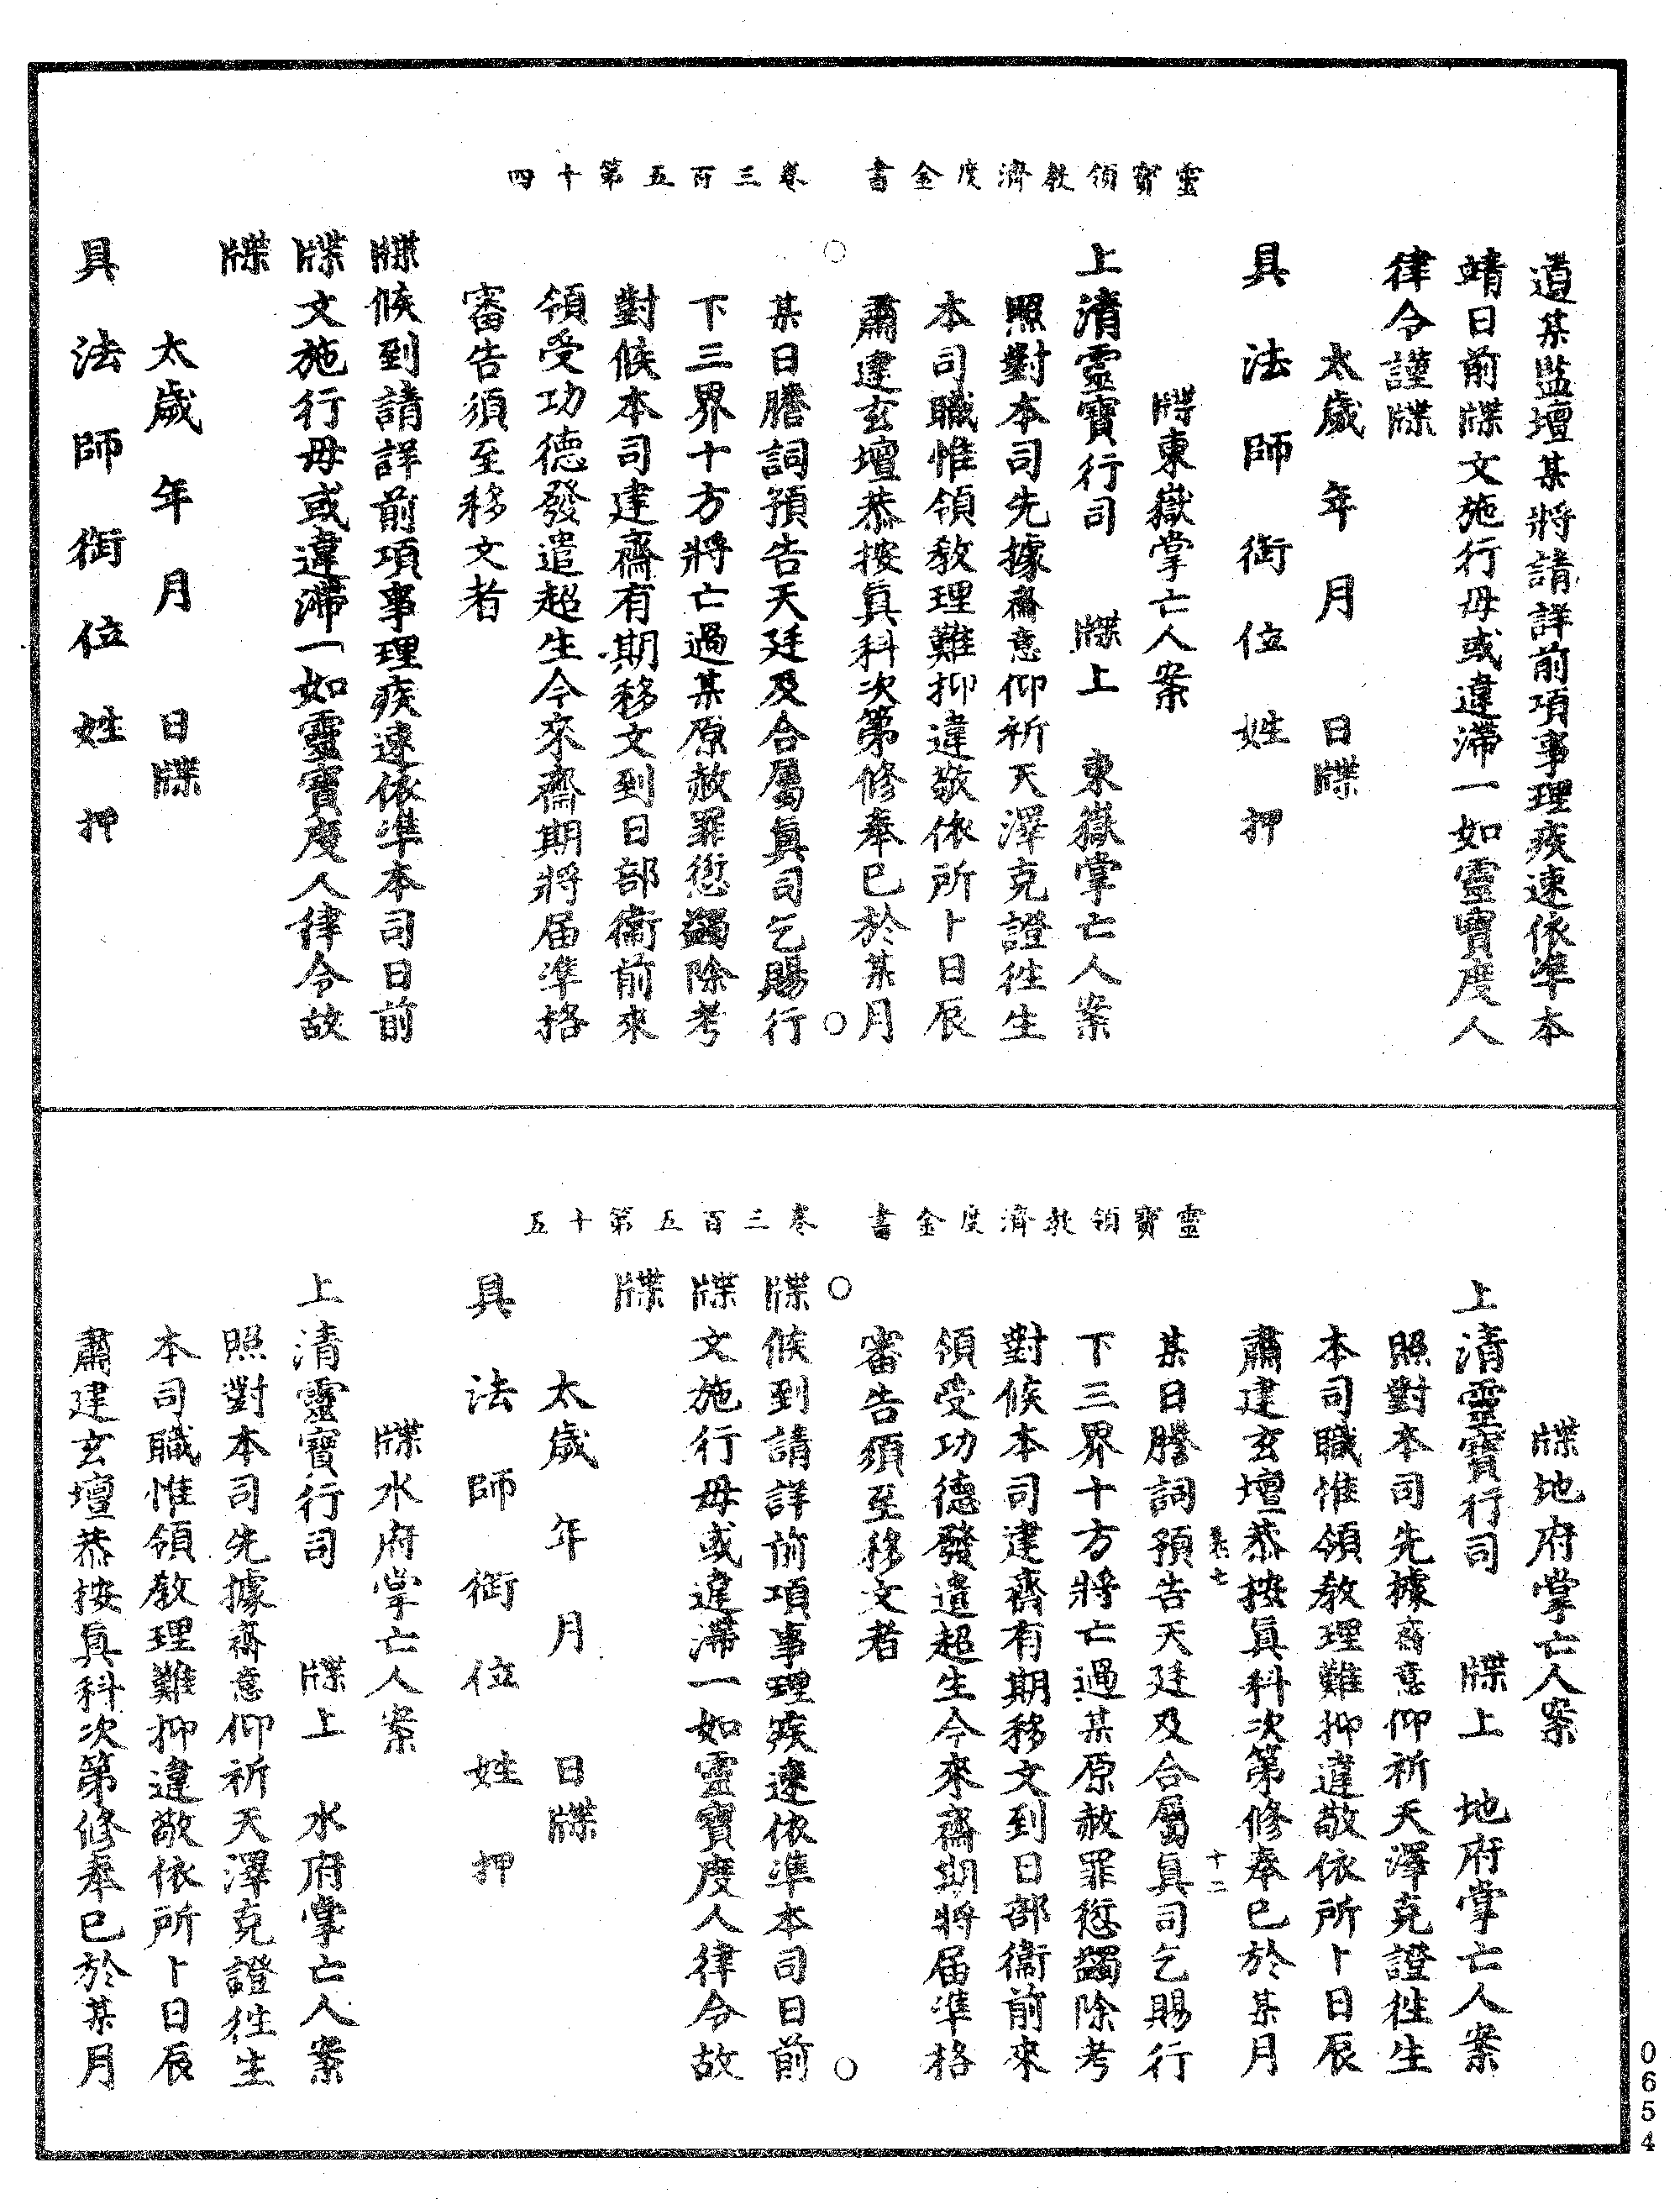 靈寶領教濟度金書　卷三百五第十四
道某監壇某將請詳前項事理疾速依準本
靖日前牒文施行毋或違滯一如靈寶度人
律令謹牒
太歲　年　月　日牒
具法師銜位姓押
牒東嶽掌亡人案
上清靈寶行司　牒上　東嶽掌亡人案
照對本司先據齋意仰祈天澤克證往生
本司職惟領教理難抑違敬依所卜日辰
肅建玄壇恭按眞科次第修奉已於某月
某日謄詞預告天廷及合屬眞司乞賜行
下三界十方將亡過某原赦罪愆蠲除考
對候本司建齋有期移文到日部衞前來
領受功德發遣超生今來齋期將届準格
審告須至移文者
牒候到請詳前項事理疾速依準本司日前
牒文施行毋或違滯一如靈寶度人律令故
牒
太歲　年　月　日牒
具法師銜位姓押
靈寶領教濟度金書　卷三百五第十五
牒地府掌亡人案
上清靈寶行司　牒上　地府掌亡人案
照對本司先據齋意仰祈天澤克證往生
本司職惟領教理難抑違敬依所卜日辰
肅建玄壇恭按眞科次第修奉已於某月
十二
某日謄詞預告天廷及合屬眞司乞賜行
下三界十方將亡過某原赦罪愆蠲除考
對候本司建齋有期移文到日部衞前來
領受功德發遣超生今來齋期將届準格
審告須至移文者
牒候到請詳前項事理疾速依準本司日前
牒文施行毋或違滯一如靈寶度人律令故
牒
太歲　年　月　日牒
具法師銜位姓押
牒水府掌亡人案
上清靈寶行司　牒上　水府掌亡人案
照對本司先據齋意仰祈天澤克證往生
本司職惟領教理難抑違敬依所卜日辰
肅建玄壇恭按眞科次第修奉已於某月
0654